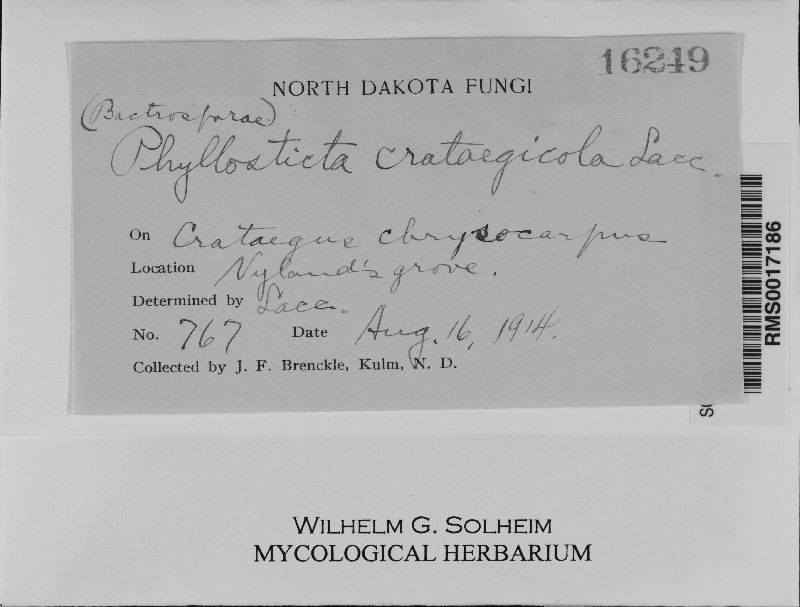 16249
NORTH DAKOTA FUNGI
(Bactrosporae)
Phyllosticta crataegicola Sacc.
On Crataegus chrysocarpus
Location Nyland's grove.
Determined by Sacc.
No. 767 Date Aug. 16, 1914.
Collected by J. F. Brenckle, Kulm, N. D.
RMS0017186
WILHELM G. SOLHEIM
MYCOLOGICAL HERBARIUM